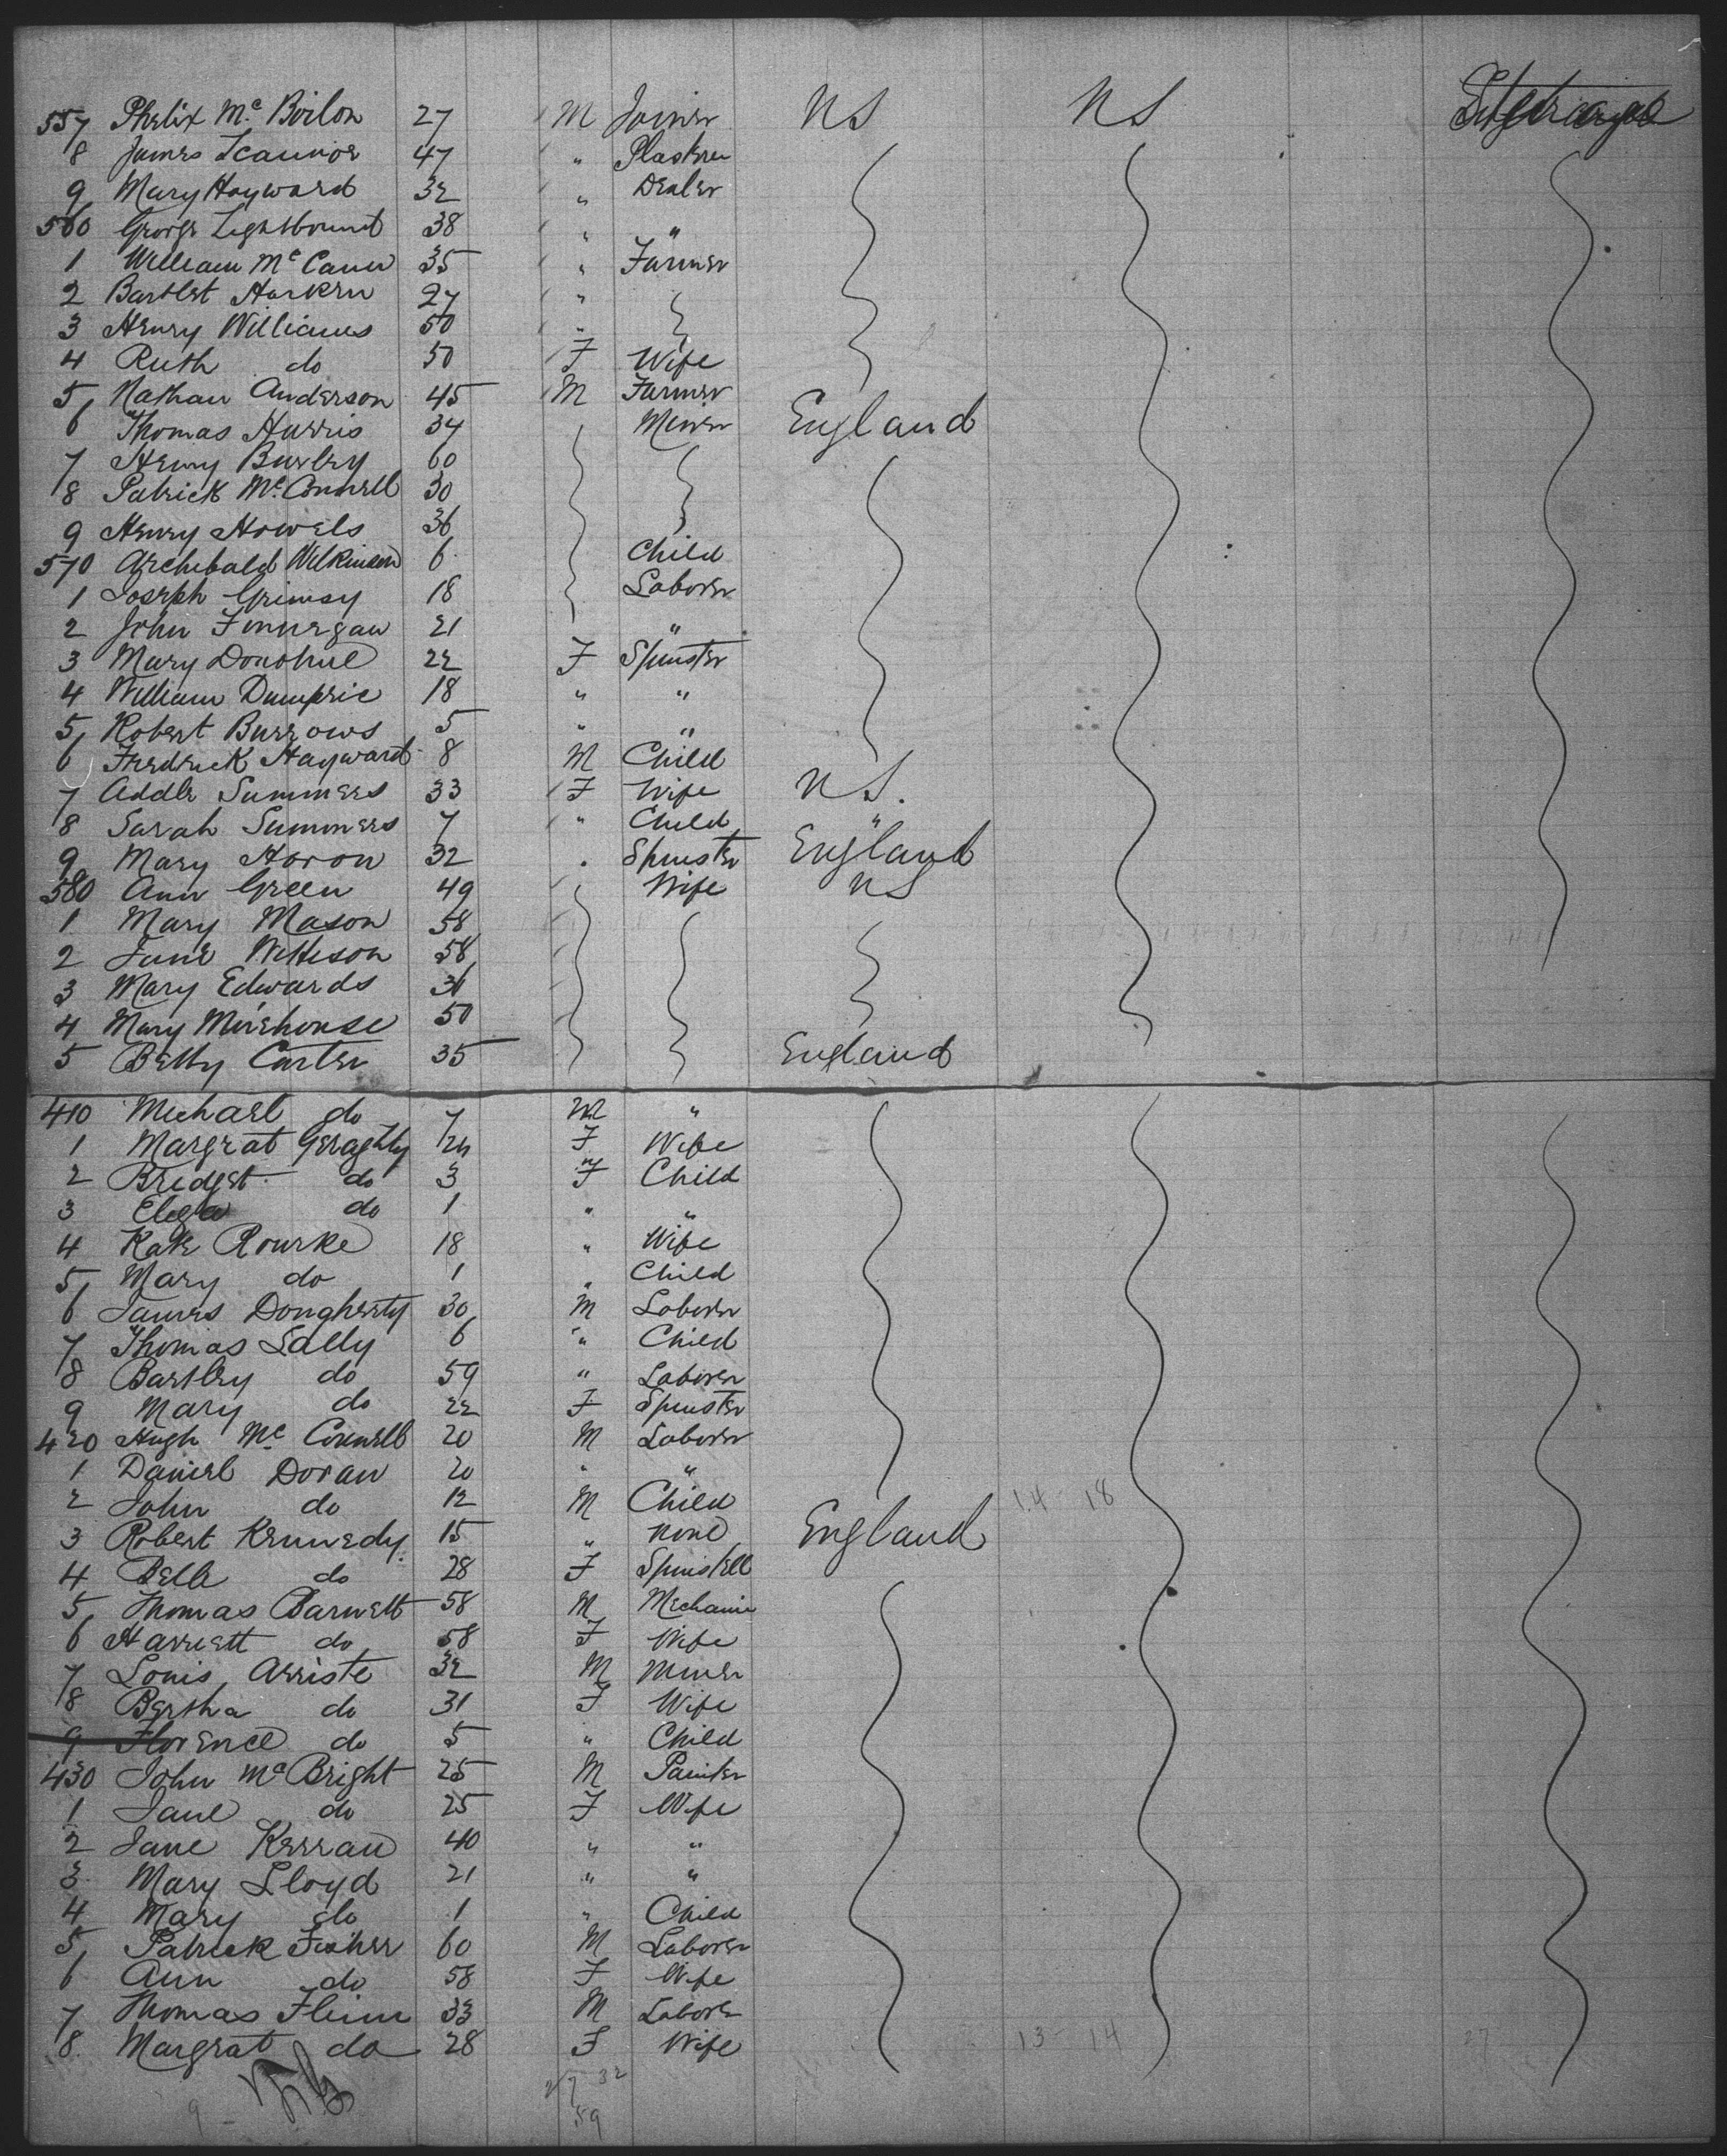 557 Phelix Mc Boilon 27 M Joiner US US
8 James Scannor 47 " Plasterer
9 Mary Hayward 32 " Dealer
560 George Lightbound 38 " "
1 William McCann 35 " Farmer
2 Bartlet Harken 27 "
3 Henry Williams 50 "
4 Ruth do 50 F Wife
5 Nathan Anderson 45 M Farmer
6 Thomas Harris 34 Miner England
7 Henry Burley 60
8 Patrick McConnell 30
9 Henry Howels 36
570 Archibald Wilkinson 6 Child
1 Joseph Grimsy 18 Laborer
2 John Finnegan 21 "
3 Mary Donohue 22 F Spinster
4 William Dumpric 18 " "
5 Robert Burrows 5 " "
6 Fredrick Hayward 8 M Child
7 Addle Summers 33 F Wife US.
8 Sarah Summers 7 " Child "
9 Mary Horon 32 " Spinster England
580 Ann Green 49 Wife US
1 Mary Mason 58
2 Jane 58
3 Mary Edwards 36
4 Mary Morehouse 50
5 Betty Carter 35 England
410 Michael do 7 M "
1 Margrat Geraghty 24 F Wife
2 Bridget do 3 F Child
3 Eliza do 1 " "
4 Kate Rourke 18 " Wife
5 Mary do 1 " Child
6 James Dougherty 30 M Laborer
7 Thomas Lally 6 " Child
8 Bartley do 59 " Laborer
9 Mary do 22 F Spinster
420 Hugh Mc Connell 20 M Laborer
1 Daniel Doran 20 " "
2 John do 12 M Child 14 18
3 Robert Kennedy 15 " none England
4 Belle do 28 F
5 Thomas Barnett 58 M Mechanic
6 Harriett do 58 F Wife
7 Louis Arriste 32 M Miner
8 Bertha do 31 F Wife
9 Florence do 5 " Child
430 John McBright 25 M Painter
1 Jane do 25 F Wife
2 Jane Kerran 40 " "
3 Mary Lloyd 21 " "
4 Mary do 1 " Child
5 Patrick Fisher 60 M Laborer
6 Ann do 58 F Wife
7 Thomas Flinn 33 M Laborer
8 Margrat do 28 F Wife 13 14 27
27 32
9 59